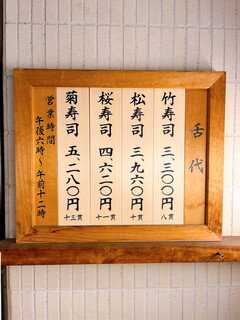 舌代
竹寿司 三、三〇〇円 八貫
松寿司 三、九六〇円 十貫
桜寿司 四、六二〇円 十一貫
菊寿司 五、二八〇円 十三貫
営業時間
午後六時〜午前十二時